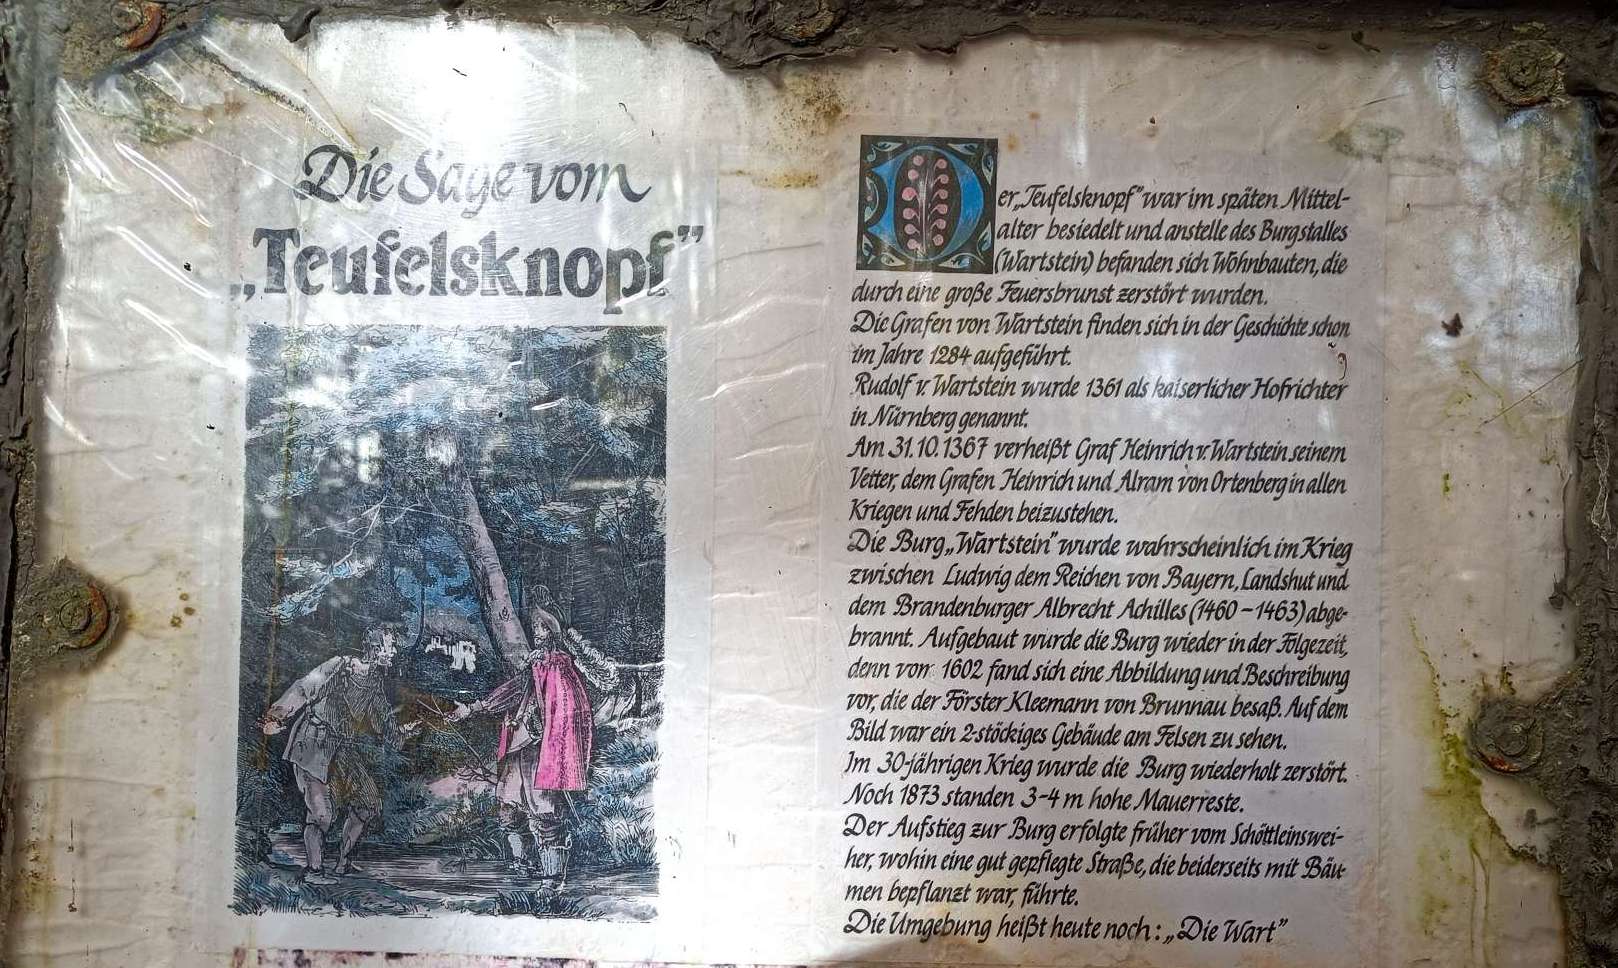 Die Sage vom
„Teufelsknopf”
Der „Teufelsknopf” war im späten Mittel-
alter besiedelt und anstelle des Burgstalles
(Wartstein) befanden sich Wohnbauten, die
durch eine große Feuersbrunst zerstört wurden.
Die Grafen von Wartstein finden sich in der Geschichte schon
im Jahre 1284 aufgeführt.
Rudolf v. Wartstein wurde 1361 als kaiserlicher Hofrichter
in Nürnberg genannt.
Am 31.10.1367 verheißt Graf Heinrich v. Wartstein seinem
Vetter, dem Grafen Heinrich und Alram von Ortenberg in allen
Kriegen und Fehden beizustehen.
Die Burg „Wartstein” wurde wahrscheinlich im Krieg
zwischen Ludwig dem Reichen von Bayern, Landshut und
dem Brandenburger Albrecht Achilles (1460 – 1463) abge-
brannt. Aufgebaut wurde die Burg wieder in der Folgezeit,
denn von 1602 fand sich eine Abbildung und Beschreibung
vor, die der Förster Kleemann von Brunnau besaß. Auf dem
Bild war ein 2-stöckiges Gebäude am Felsen zu sehen.
Im 30-jährigen Krieg wurde die Burg wiederholt zerstört.
Noch 1873 standen 3-4 m hohe Mauerreste.
Der Aufstieg zur Burg erfolgte früher vom Schöttleinswei-
her, wohin eine gut gepflegte Straße, die beiderseits mit Bäu-
men bepflanzt war, führte.
Die Umgebung heißt heute noch: „Die Wart”